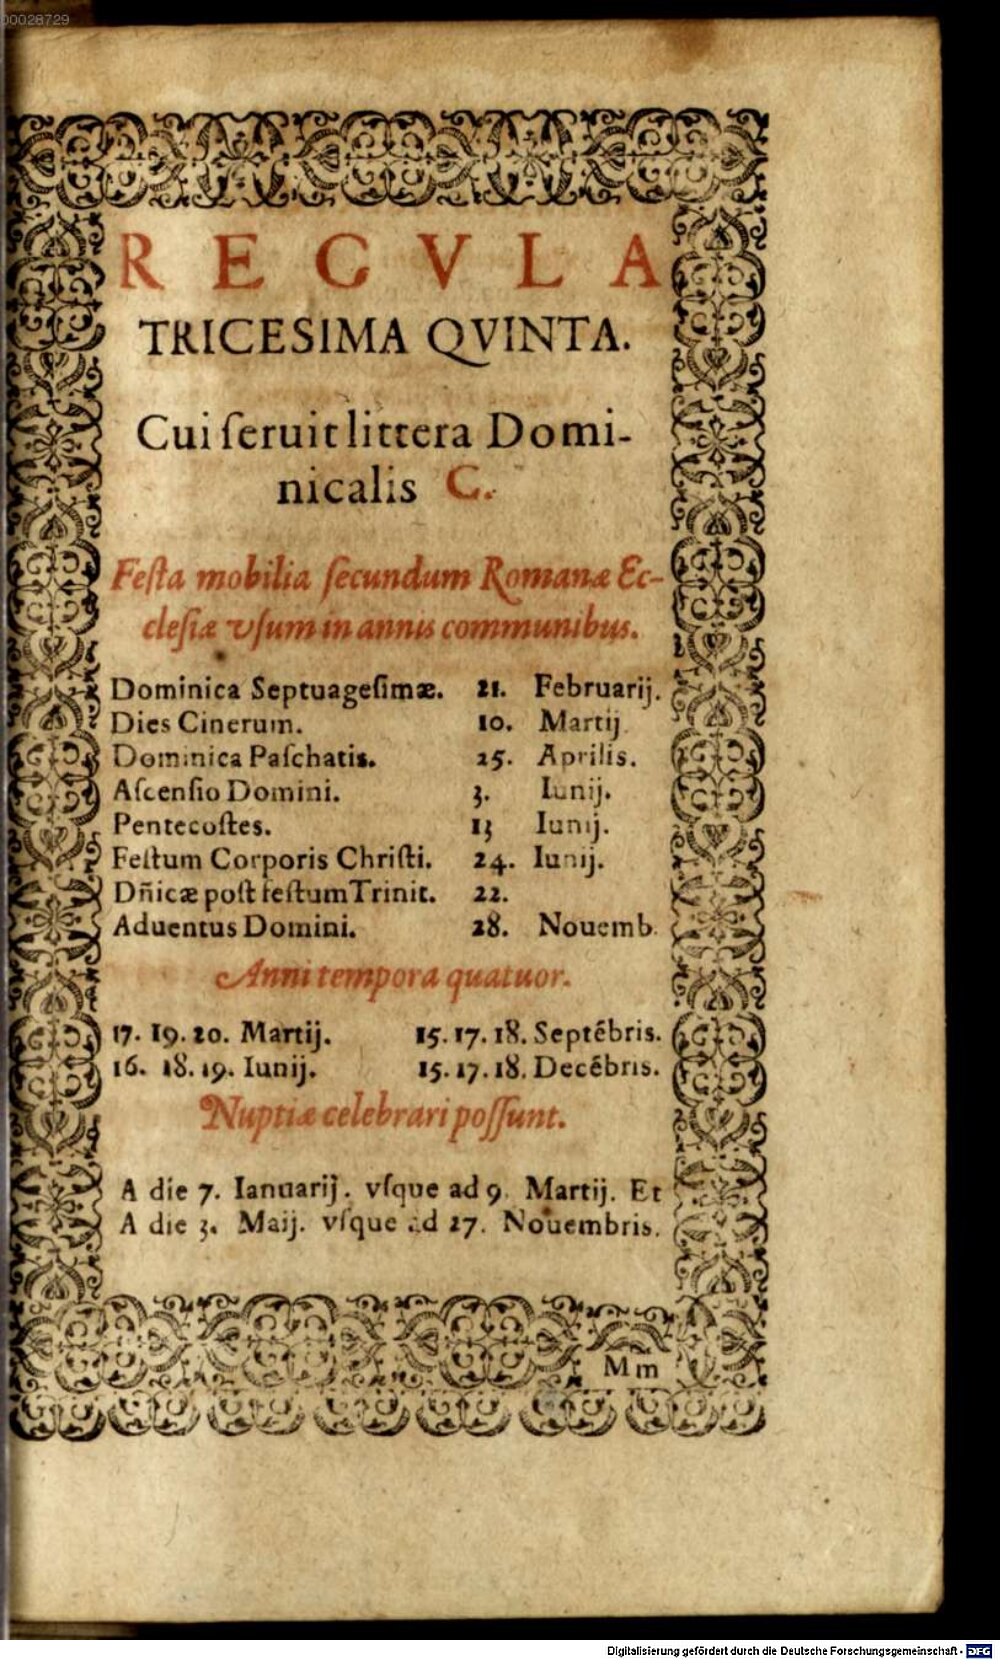 00028729
REGVLA
TRICESIMA QVINTA.
Cui ſeruit littera Domi-
nicalis C.
Feſta mobilia ſecundum Romanæ Ec-
cleſiæ vſum in annis communibus.
Dominica Septuageſimæ. 21. Februarij.
Dies Cinerum. 10. Martij
Dominica Paſchatis. 25. Aprilis.
Aſcenſio Domini. 3. Iunij.
Pentecoſtes. 13 Iunij.
Feſtum Corporis Chriſti. 24. Iunij.
Dñicæ poſt feſtum Trinit. 22.
Aduentus Domini. 28. Nouemb.
Anni tempora quatuor.
17. 19. 20. Martij. 15. 17. 18. Septēbris.
16. 18. 19. Iunij. 15. 17. 18. Decēbris.
Nuptiæ celebrari poſſunt.
A die 7. Ianuarij. vſque ad 9. Martij. Et
A die 3. Maij. vſque ad 27. Nouembris.
Mm
Digitalisierung gefördert durch die Deutsche Forschungsgemeinschaft - DFG